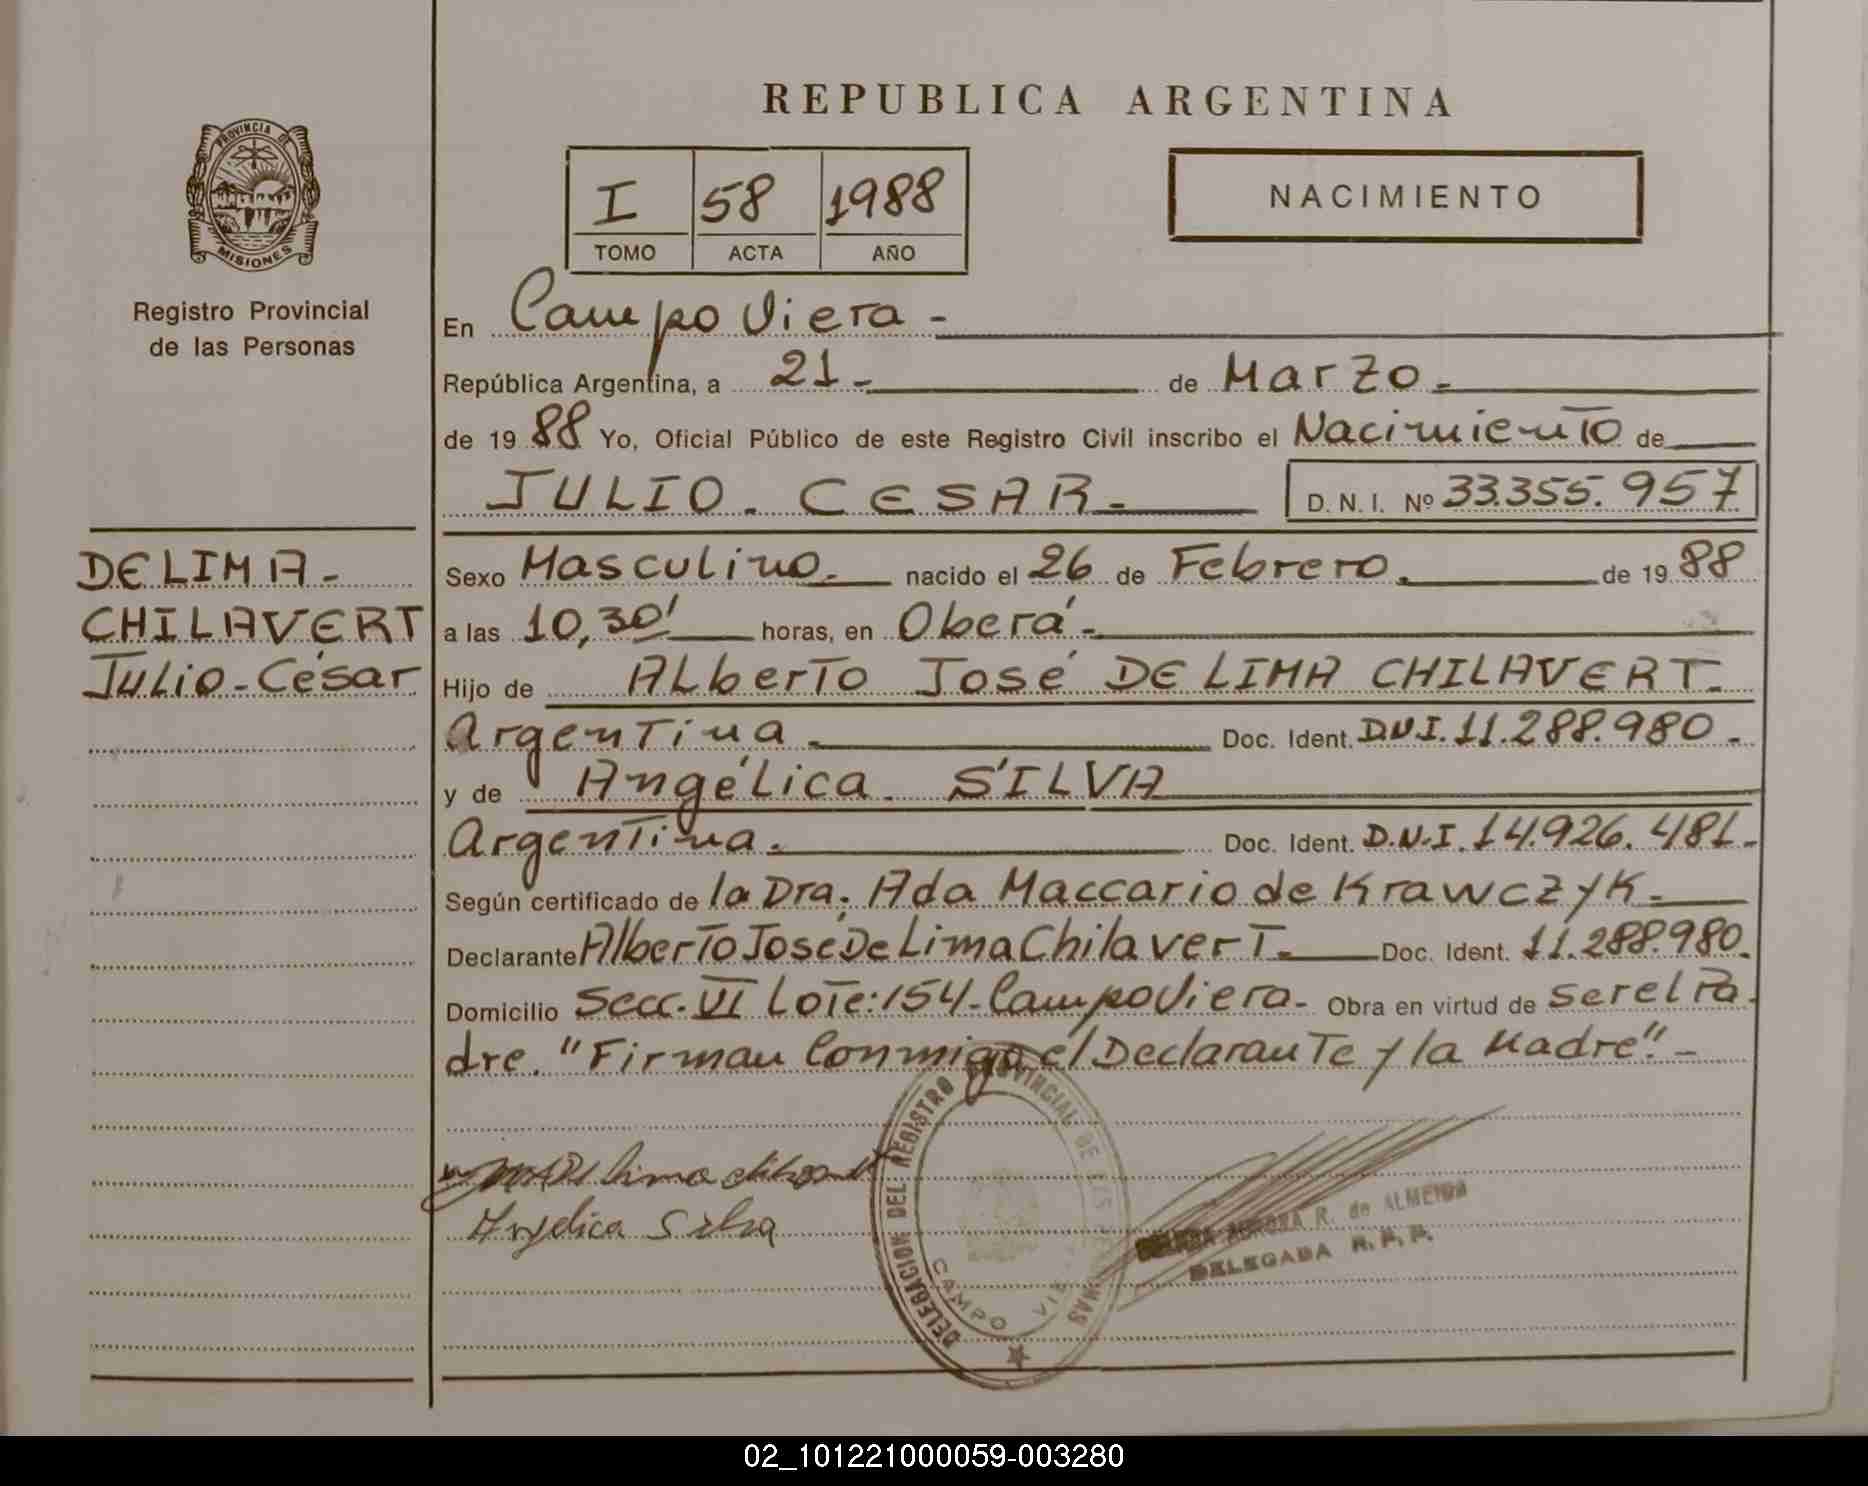 REPUBLICA ARGENTINA
PROVINCIA DE
MISIONES
Registro Provincial
de las Personas
I 58 1988
TOMO ACTA AÑO
NACIMIENTO
En Campo Viera -
República Argentina, a 21 - de Marzo -
de 19 88 Yo, Oficial Público de este Registro Civil inscribo el Nacimiento de
JULIO. CESAR - D. N. I. Nº 33.355.957
DE LIMA -
CHILAVERT
Julio - César
Sexo Masculino. nacido el 26 de Febrero. de 19 88
a las 10,30' horas, en Oberá -
Hijo de Alberto José DE LIMA CHILAVERT.
Argentina. Doc. Ident. D.N.I. 11.288.980 -
y de Angélica. SILVA
Argentina. Doc. Ident. D.N.I. 14.926.481 -
Según certificado de la Dra; Ada Maccario de Krawczyk -
Declarante Alberto José De Lima Chilavert - Doc. Ident. 11.288.980.
Domicilio Secc. VI Lote: 154 - Campo Viera - Obra en virtud de ser el Pa-
dre. "Firman Conmigo el Declarante y la Madre". -
De Lima
Angelica Silva
DELEGACION DEL REGISTRO PROVINCIAL DE LAS
CAMPO
R. de ALMEIDA
DELEGADA R. P. P.
02_101221000059-003280